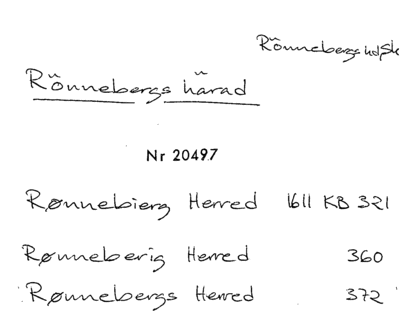 Rönnebergs hd, Sk
Rönnebergs härad
Nr 20497
Rønnebierg Herred 1611 KB 321
Rønneberig Herred 360
Rønnebergs Herred 372